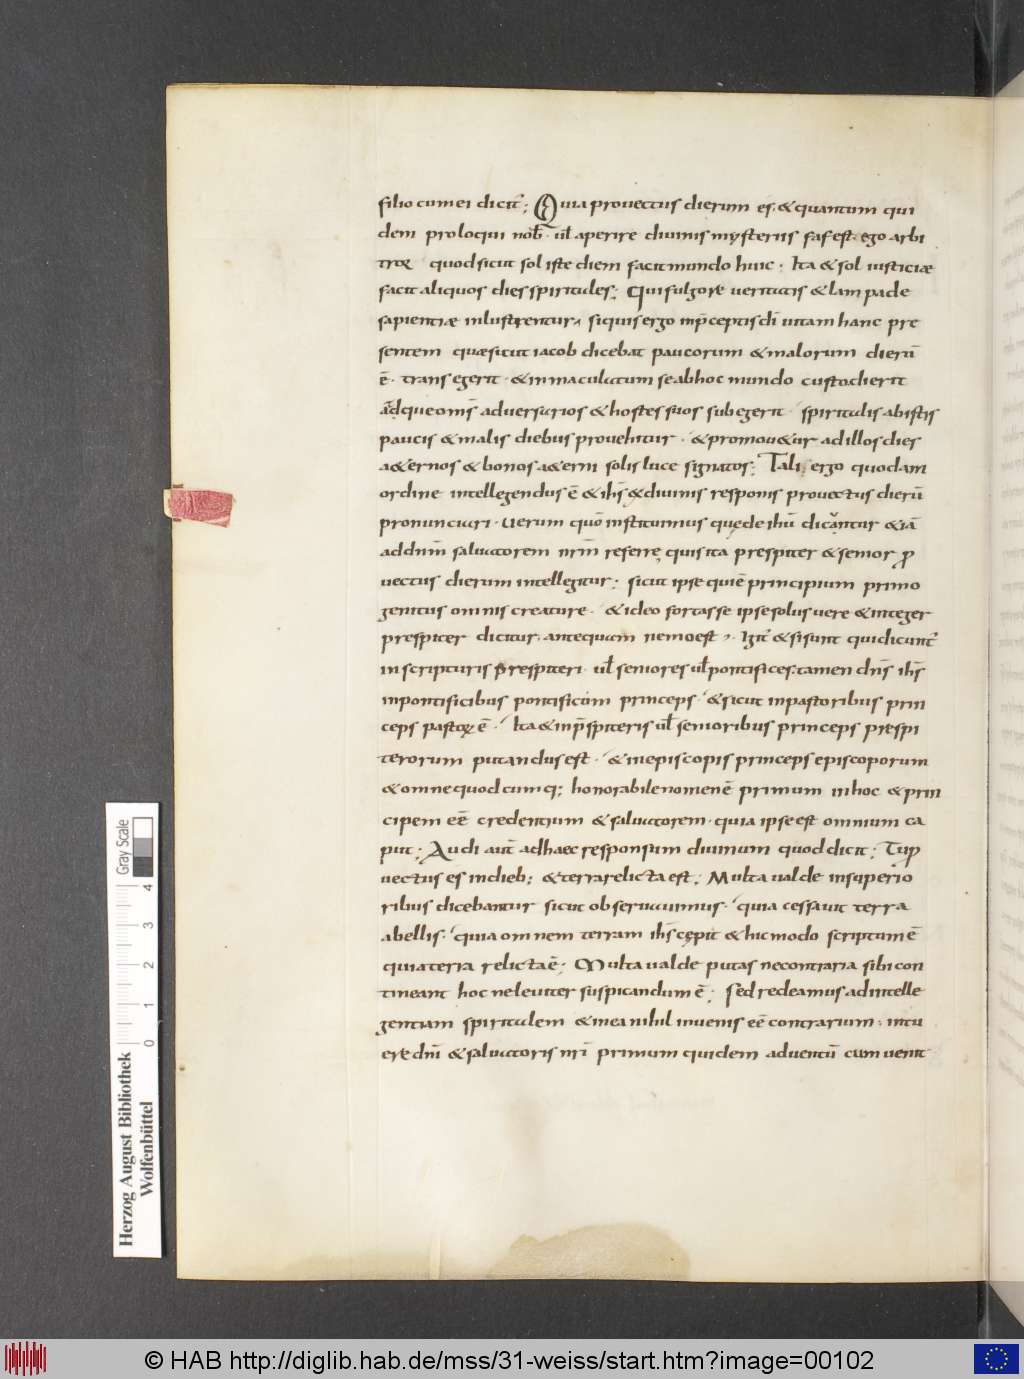 filio cum ei dicit̄; Quia prouectus dierum es. & quantum qui
dem proloqui nob̄. ul̄ aperire diuinis mysteriis fas est. ego arbi
troꝛ quod sicut sol iste diem facit mundo huic. Ita & sol iusticiæ
facit aliquos dies spiritales; Qui fulgore ueritatis & lampade
sapientiæ inlustrentur, si quis ergo inp̄ceptis dī uitam hanc pre
sentem quæ sicut iacob dicebat paucorum & malorum dierū
ē. transegerit. & inmaculatum se ab hoc mundo custodierit
adque omīs aduersarios & hostes suos subegerit. spiritalis ab istis
paucis & malis diebus prouehitur. & promou&ur ad illos dies
a&ernos & bonos a&erni solis luce signatos; Tali ergo quodam
ordine intellegendus ē & ihs̄ ex diuinis responsis prouectus dierū
pronunciari. Uerum quō instituimus quęde ihū dicantur & iā
ad dnm̄ saluatorem nrm̄ referre, quis ita prespiter & senior ꝓ
uectus dierum intellegitur; sicut ipse qui ē principium primo
genitus omnis creature. & ideo fortasse ipse solus uere & integer
prespiter dicitur. ante quam nemo est. Igit̄ & si sunt qui dicunt̄
in scripturis prespiteri. ul̄ seniores ul̄ pontifices. tamen dns̄ ihs̄
in pontificibus pontificum princeps. & sicut in pastoribus prin
ceps pastoꝝ ē. Ita & in p̄spiteris ul̄ senioribus princeps prespi
terorum putandus est. & in episcopis princeps episcoporum
& omne quodcumq; honorabile nomen ē primum in hoc & prin
cipem eē credentium & saluatorem. quia ipse est omnium ca
put; Audi aut̄ ad haec responsum diuinum quod dicit; Tu ꝓ
uectus es in dieb; & terra relicta est; Multa ualde in superio
ribus dicebantur sicut obseruauimus. quia cessauit terra
a bellis. quia omnem terram ihs̄ cępit & hic modo scriptum ē
quia terra relicta ē; Multa ualde putas ne contraria sibi con
tineant hoc ne leuiter suspicandum ē; Sed redeamus ad intelle
gentiam spiritalem & in ea nihil inuenis eē contrarium. intu
ere dnī & saluatoris nrī primum quidem aduentū cum uenit
Gray Scale
4
3
2
1
0
Herzog August Bibliothek
Wolfenbüttel
© HAB http://diglib.hab.de/mss/31-weiss/start.htm?image=00102